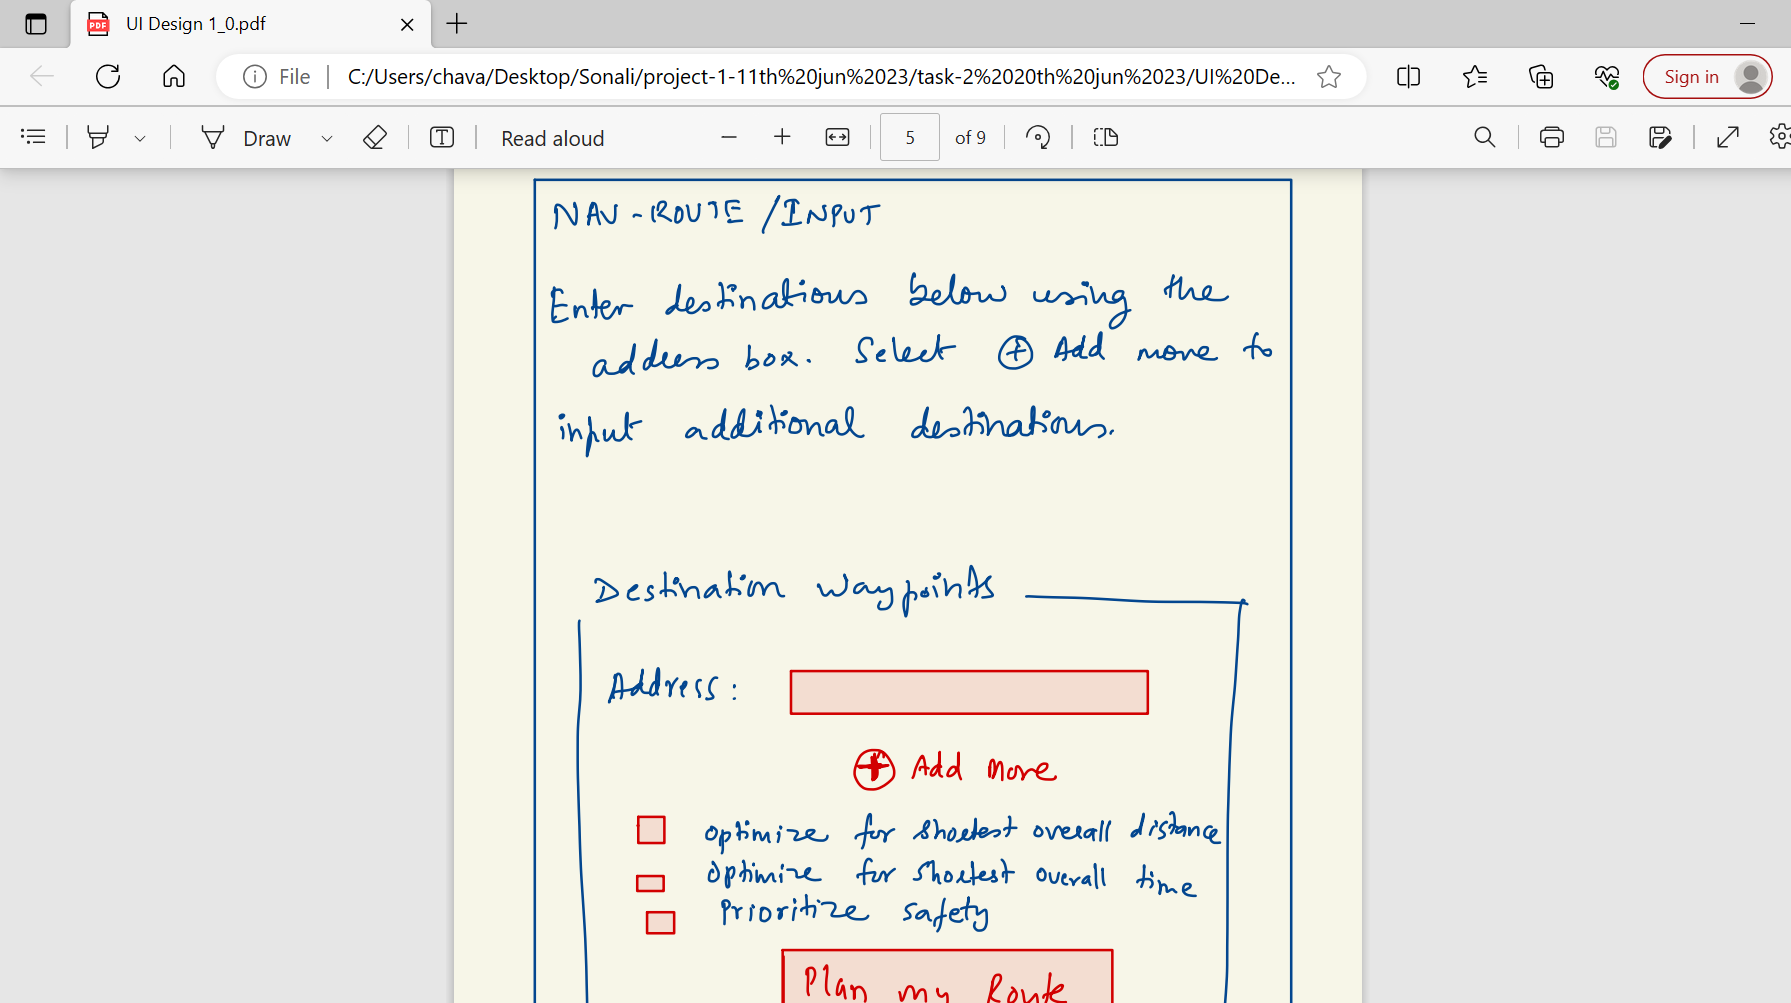 UI Design 1_0.pdf
File
C:/Users/chava/Desktop/Sonali/project-1-11th%20jun%2023/task-2%2020th%20jun%2023/UI%20De...
Sign in
Draw
Read aloud
5 of 9
NAV-ROUTE/INPUT
Enter destinations below using the
address box. Select + Add more to
input additional destinations.
Destination waypoints
Address:
+ Add More
optimize for shortest overall distance
optimize for shortest overall time
Prioritize safety
Plan my Route